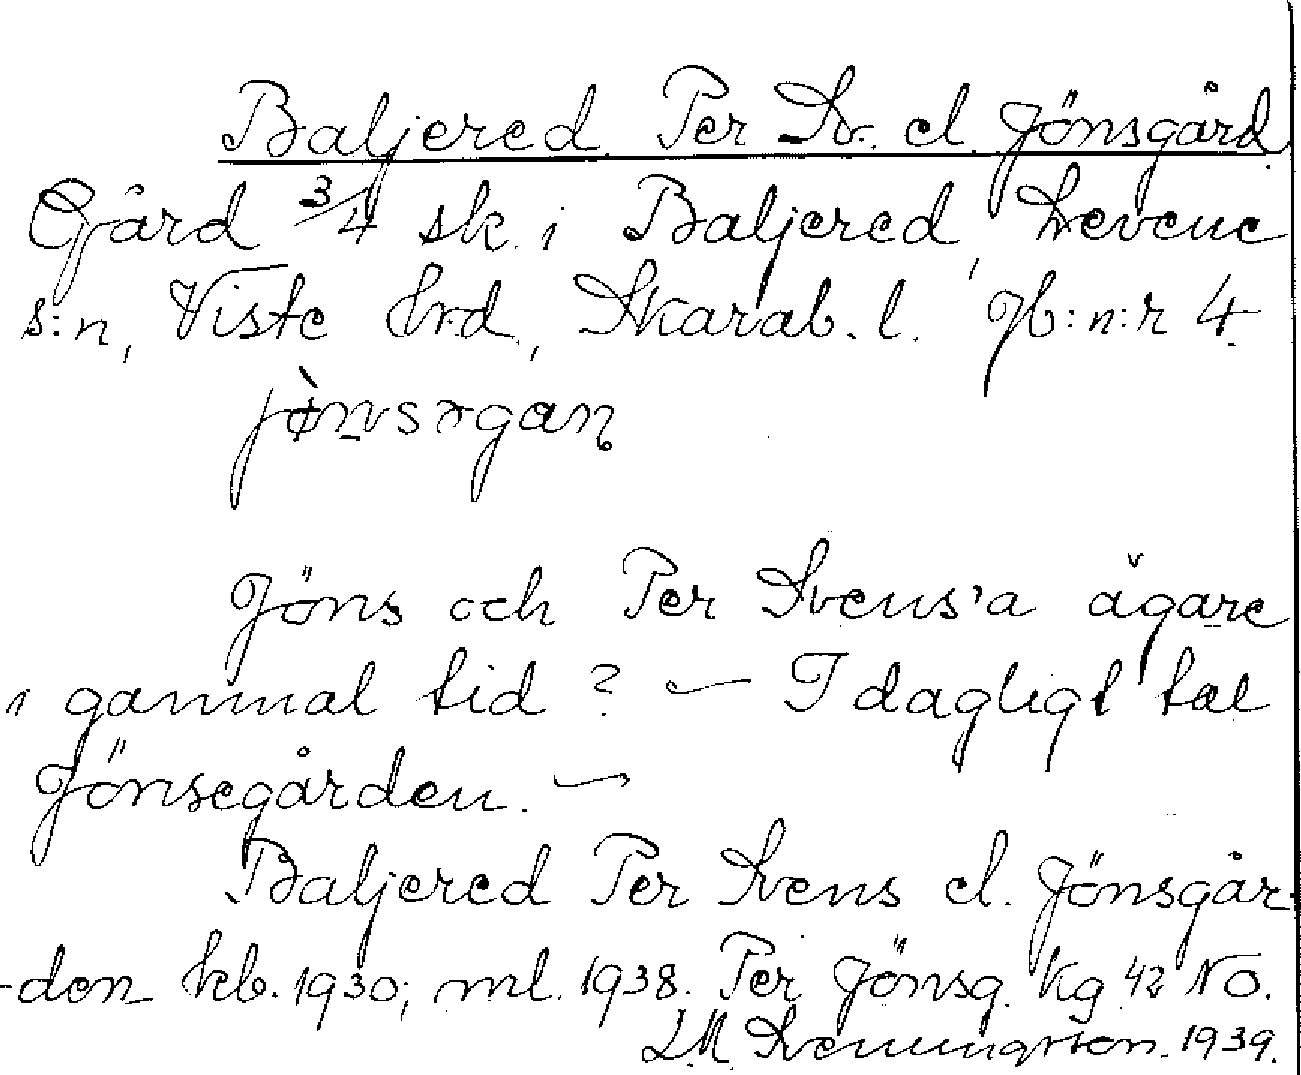 Baljered Per Sv. el. Jönsgård
Gård 3/4 sk. i Baljered, Levene
s:n, Viste hrd, Skarab. l. Jb:n:r 4.
Jöns och Per Svens'a ägare
i gammal tid? — I dagligt tal
Jönsegården. —
Baljered Per Svens el. Jönsgår-
-den kb. 1930; ml. 1938. Per Jönsg. Kg 42 NO.
1939.